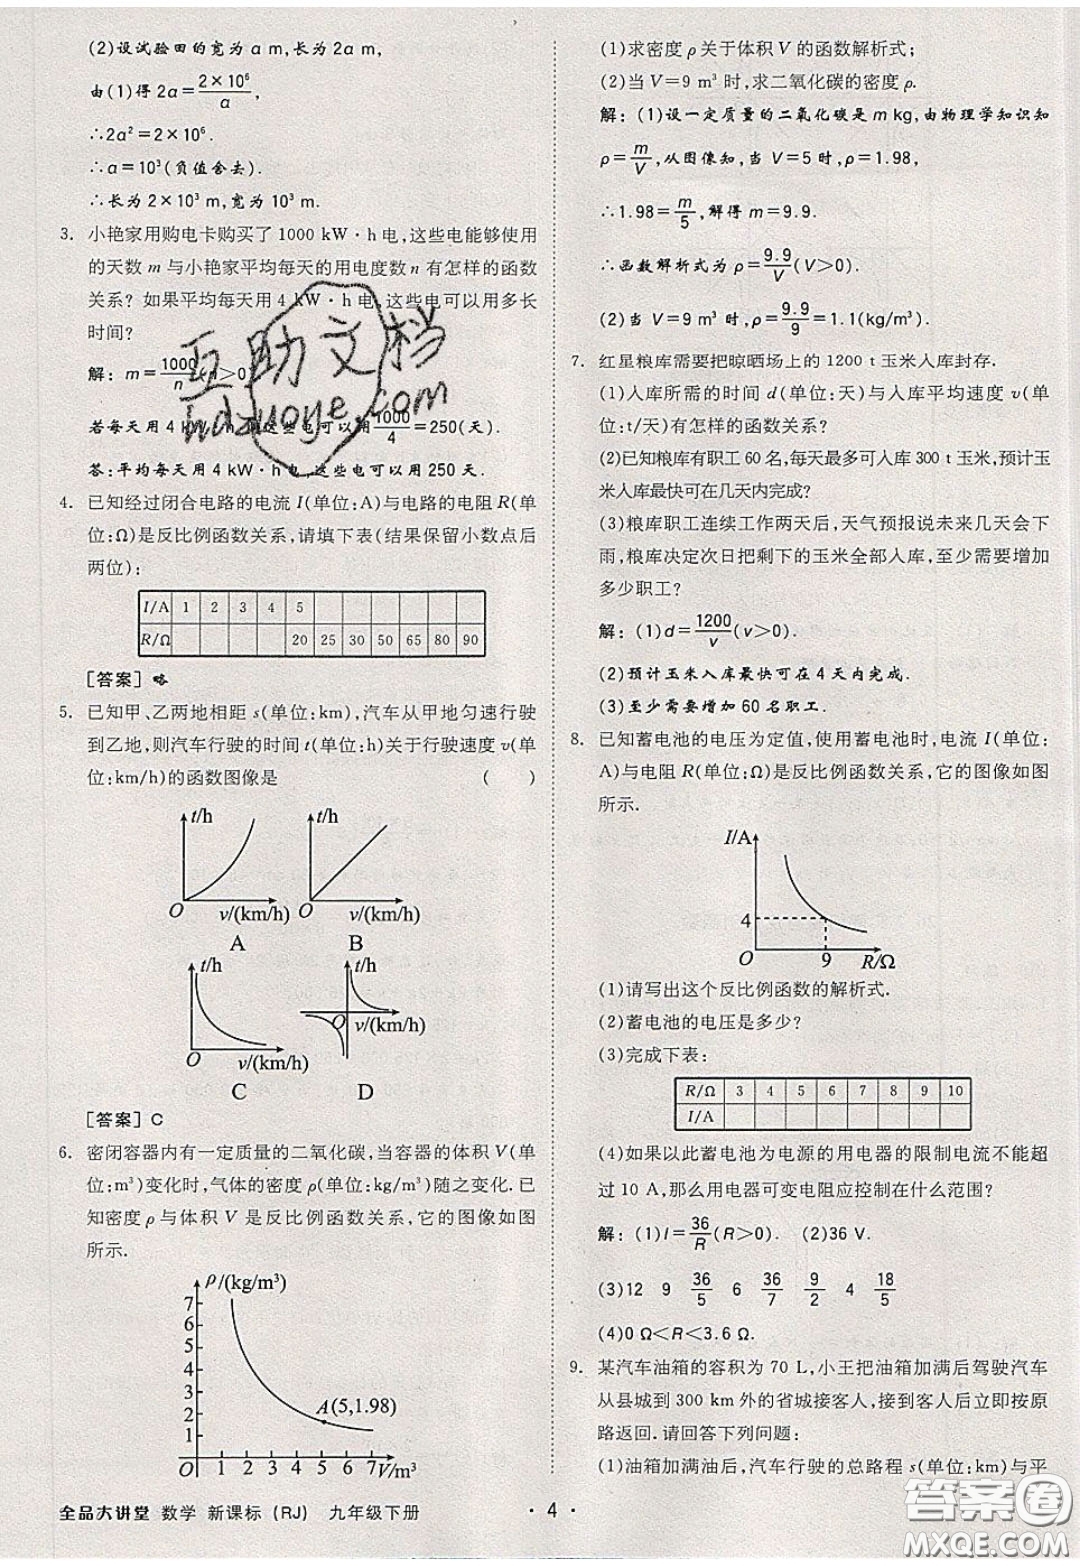 (2)设试验田的宽为 a m,长为 2a m,
由(1)得 2a=2×10⁶/a,
∴2a²=2×10⁶.
∴a=10³(负值舍去).
∴长为 2×10³ m,宽为 10³ m.
3. 小艳家用购电卡购买了 1000 kW·h 电,这些电能够使用
的天数 m 与小艳家平均每天的用电度数 n 有怎样的函数
关系? 如果平均每天用 4 kW·h 电,这些电可以用多长
时间?
解: m=1000/n(n>0)
若每天用 4 kW·h 则这些电可以用1000/4=250(天).
答:平均每天用 4 kW·h 电,这些电可以用 250 天.
4. 已知经过闭合电路的电流 I(单位:A)与电路的电阻 R(单
位:Ω)是反比例函数关系,请填下表(结果保留小数点后
两位):
I/A 1 2 3 4 5
R/Ω 20 25 30 50 65 80 90
[答案]略
5. 已知甲、乙两地相距 s(单位:km),汽车从甲地匀速行驶
到乙地,则汽车行驶的时间 t(单位:h)关于行驶速度 v(单
位:km/h)的函数图像是 ( )
t/h t/h
O v/(km/h) O v/(km/h)
A B
t/h t/h
O v/(km/h) O v/(km/h)
C D
[答案]C
6. 密闭容器内有一定质量的二氧化碳,当容器的体积 V(单
位:m³)变化时,气体的密度 ρ(单位:kg/m³)随之变化.已
知密度 ρ 与体积 V 是反比例函数关系,它的图像如图
所示.
ρ/(kg/m³)
7
6
5
4
3
2
1
A(5,1.98)
O 1 2 3 4 5 6 7 V/m³
全品大讲堂 数学 新课标(RJ) 九年级下册
(1)求密度 ρ 关于体积 V 的函数解析式;
(2)当 V=9 m³ 时,求二氧化碳的密度 ρ.
解:(1)设一定质量的二氧化碳是 m kg,由物理学知识知
ρ=m/V,从图像知,当 V=5 时,ρ=1.98,
∴1.98=m/5,解得 m=9.9.
∴函数解析式为 ρ=9.9/V(V>0).
(2)当 V=9 m³ 时,ρ=9.9/9=1.1(kg/m³).
7. 红星粮库需要把晾晒场上的 1200 t 玉米入库封存.
(1)入库所需的时间 d(单位:天)与入库平均速度 v(单
位:t/天)有怎样的函数关系?
(2)已知粮库有职工 60 名,每天最多可入库 300 t 玉米,预计玉
米入库最快可在几天内完成?
(3)粮库职工连续工作两天后,天气预报说未来几天会下
雨,粮库决定次日把剩下的玉米全部入库,至少需要增加
多少职工?
解:(1)d=1200/v(v>0).
(2)预计玉米入库最快可在 4 天内完成.
(3)至少需要增加 60 名职工.
8. 已知蓄电池的电压为定值,使用蓄电池时,电流 I(单位:
A)与电阻 R(单位:Ω)是反比例函数关系,它的图像如图
所示.
I/A
4
O 9 R/Ω
(1)请写出这个反比例函数的解析式.
(2)蓄电池的电压是多少?
(3)完成下表:
R/Ω 3 4 5 6 7 8 9 10
I/A
(4)如果以此蓄电池为电源的用电器的限制电流不能超
过 10 A,那么用电器可变电阻应控制在什么范围?
解:(1)I=36/R(R>0). (2)36 V.
(3)12 9 36/5 6 36/7 9/2 4 18/5
(4)0 Ω<R<3.6 Ω.
9. 某汽车油箱的容积为 70 L,小王把油箱加满后驾驶汽车
从县城到 300 km 外的省城接客人,接到客人后立即按原
路返回.请回答下列问题:
(1)油箱加满油后,汽车行驶的总路程 s(单位:km)与平
· 4 ·
互助文档
hdzuoye.com
答案圈
MXQE.COM